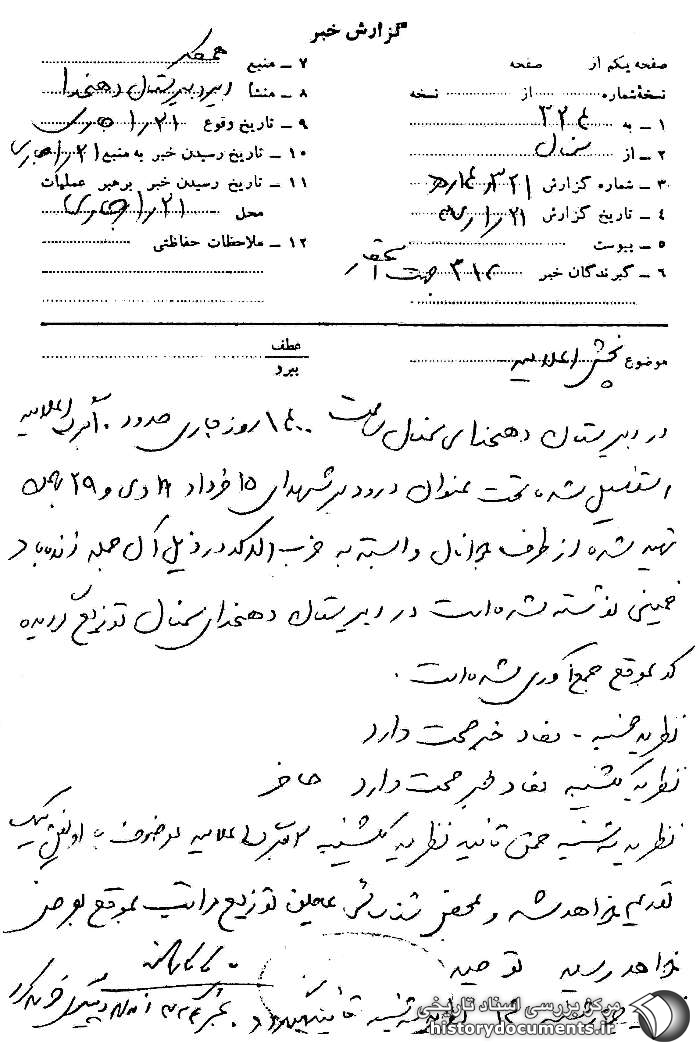 گزارش خبر
صفحه یکم از صفحه
نسخهٔ شماره از نسخه
۱ - به ۳۲۴
۲ - از سمنان
۳ - شماره گزارش
۴ - تاریخ گزارش
۵ - پیوست
۶ - گیرندگان خبر ۳۱۲ جهت استحضار
۷ - منبع همکار
۸ - منشأ دبیر دبیرستان دهخدا
۹ - تاریخ وقوع
۱۰ - تاریخ رسیدن خبر به منبع
۱۱ - تاریخ رسیدن خبر برهبر عملیات
محل
۱۲ - ملاحظات حفاظتی
موضوع پخش اعلامیه
عطف
پیرو
در دبیرستان دهخدای سمنان ساعت روز جاری حدود اعلامیه
استنسیل شده تحت عنوان درود بر شهدای ۱۵ خرداد ۱۹ دی و ۲۹ بهمن
تهیه شده از طرف جوانان وابسته به حزب اله که در ذیل آن جمله زنده باد
خمینی نوشته شده است در دبیرستان دهخدای سمنان توزیع گردیده
که بموقع جمع آوری شده است .
نظریه شنبه - مفاد خبر صحت دارد
نظریه یکشنبه مفاد خبر صحت دارد
نظریه سه شنبه ضمن تائید نظریه یکشنبه اعلامیه موصوف با اولین پیک
تقدیم خواهد شد و بمحض شناسائی عاملین توزیع مراتب بموقع بعرض
خواهد رسید
مرکز بررسی اسناد تاریخی
historydocuments.ir